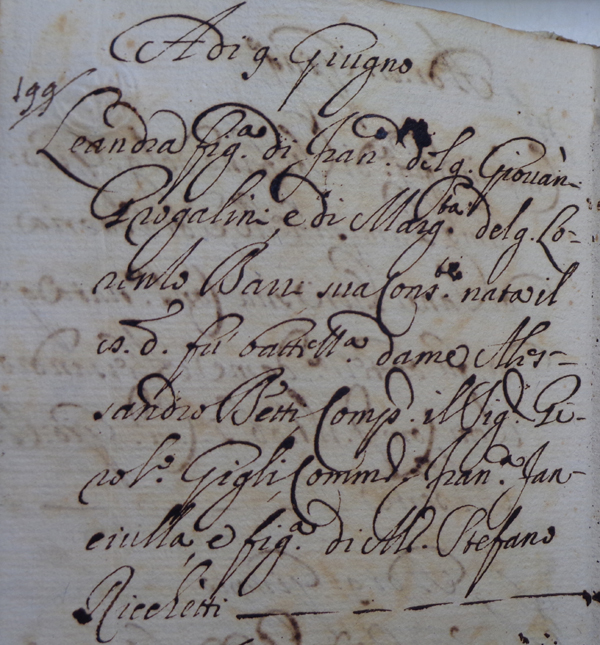 Adi 9. Giugno
199
Leandra fig.a di Fran.o del q. Giovàn
Grogalini, e di Marg.ta del q. Lo-
renzo Barri sua Cons.te nata il
s. d. fu battez.a da me Ales-
sandro Petti Comp.e il Sig. Gi-
rol.o Gigli, Comm.e Fran.a Fan-
ciulla, e fig.a di M. Stefano
Ricchetti